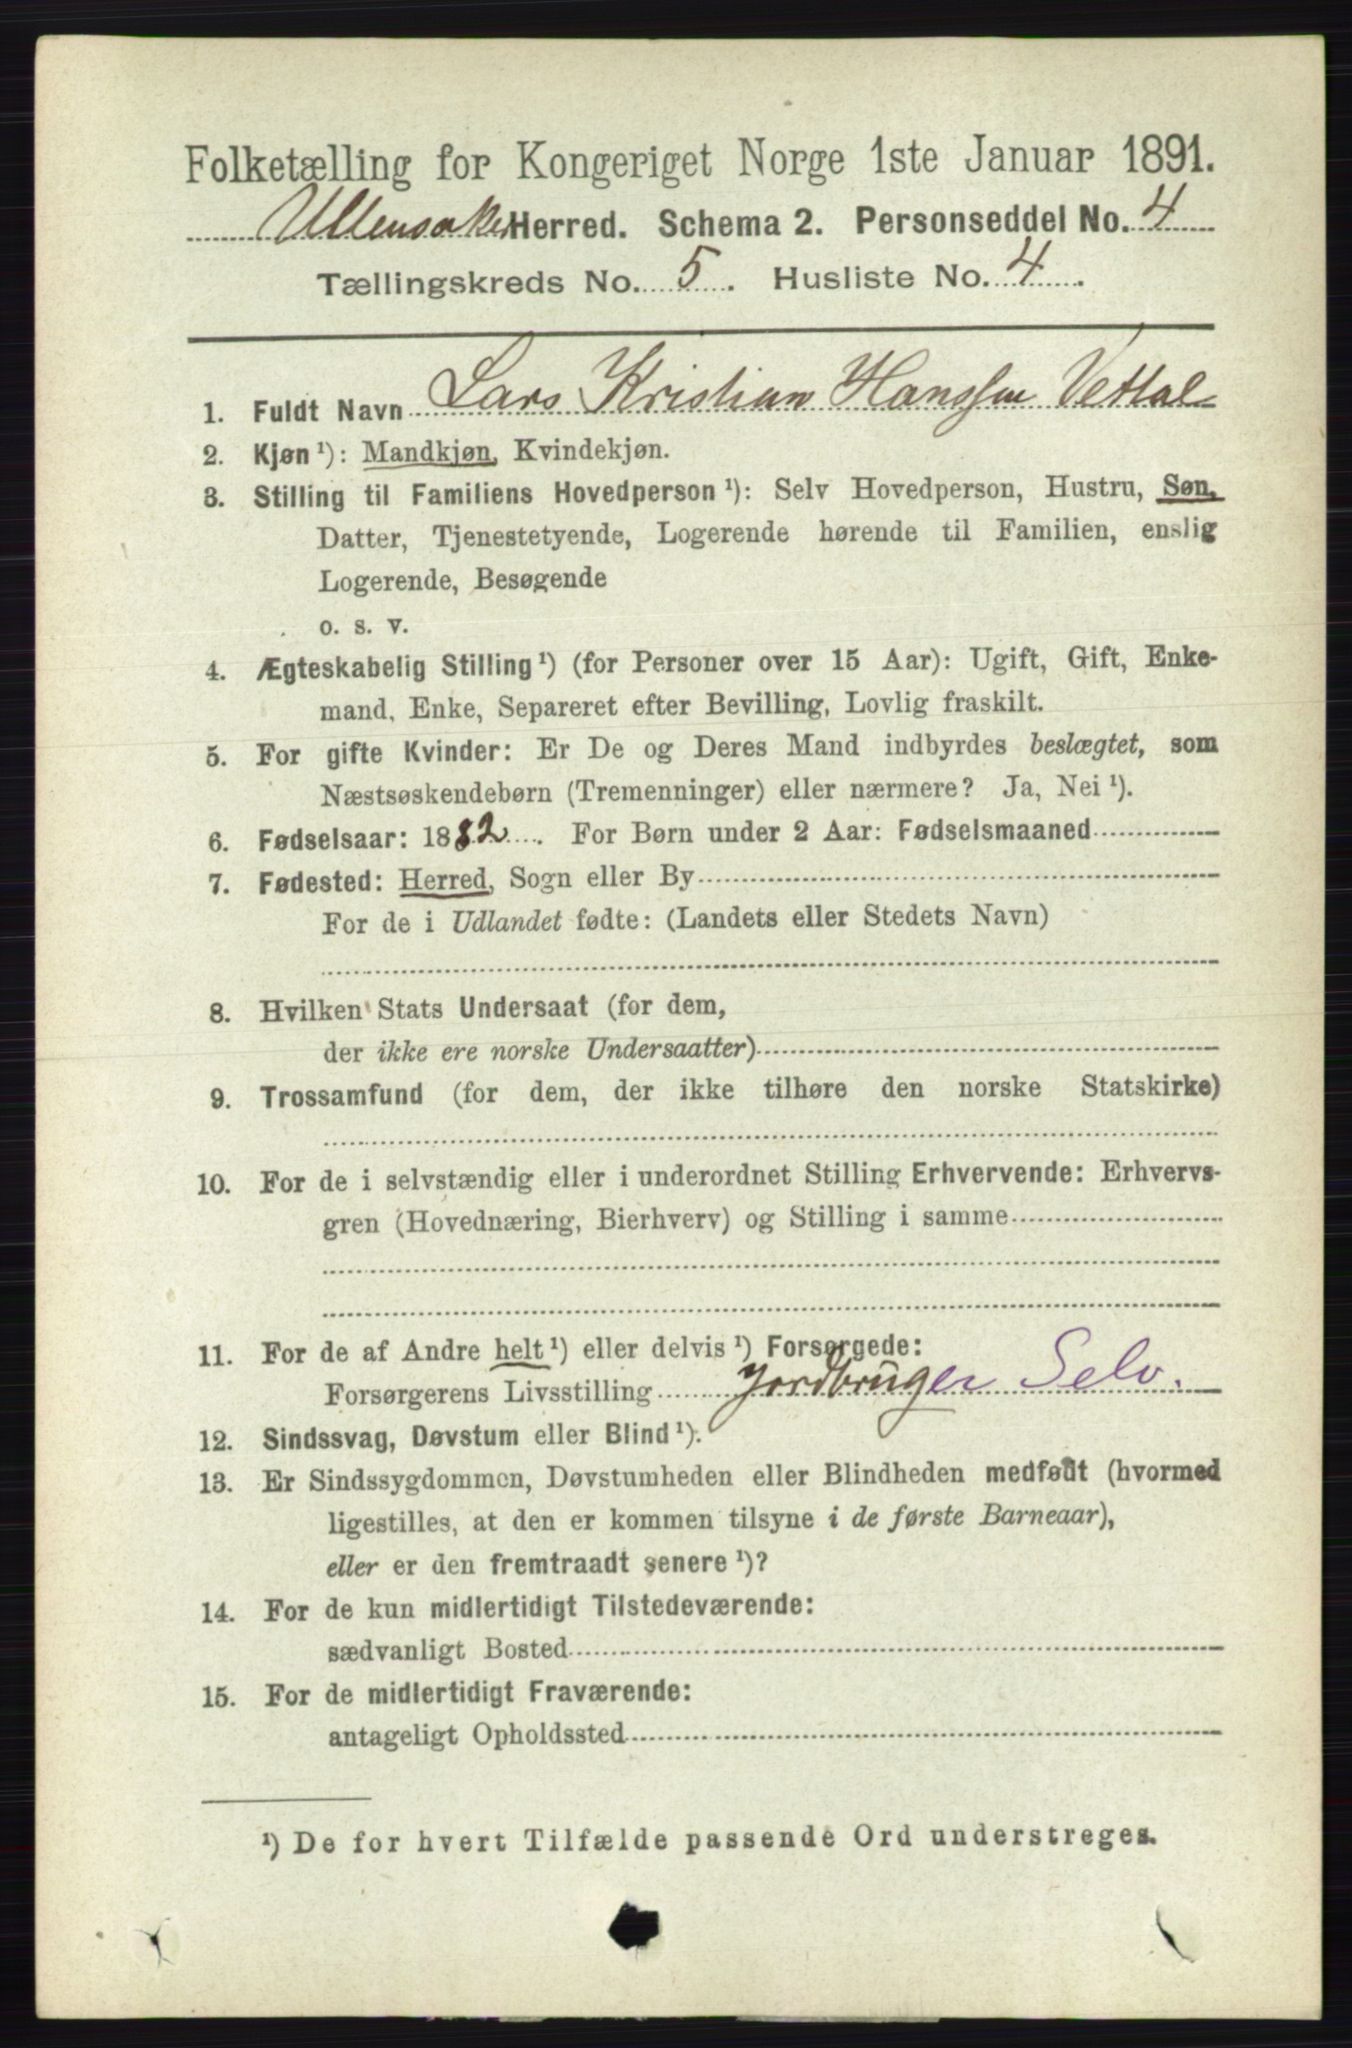 Folketælling for Kongeriget Norge 1ste Januar 1891.
Ullensaker Herred. Schema 2. Personseddel No. 4
Tællingskreds No. 5. Husliste No. 4.
1. Fuldt Navn Lars Kristian Hanssen Vettal
2. Kjøn ¹): Mandkjøn, Kvindekjøn.
3. Stilling til Familiens Hovedperson ¹): Selv Hovedperson, Hustru, Søn,
Datter, Tjenestetyende, Logerende hørende til Familien, enslig
Logerende, Besøgende
o. s. v.
4. Ægteskabelig Stilling ¹) (for Personer over 15 Aar): Ugift, Gift, Enke-
mand, Enke, Separeret efter Bevilling, Lovlig fraskilt.
5. For gifte Kvinder: Er De og Deres Mand indbyrdes beslægtet, som
Næstsøskendebørn (Tremenninger) eller nærmere? Ja, Nei ¹).
6. Fødselsaar: 1882. For Børn under 2 Aar: Fødselsmaaned
7. Fødested: Herred, Sogn eller By
For de i Udlandet fødte: (Landets eller Stedets Navn)
8. Hvilken Stats Undersaat (for dem,
der ikke ere norske Undersaatter)
9. Trossamfund (for dem, der ikke tilhøre den norske Statskirke)
10. For de i selvstændig eller i underordnet Stilling Erhvervende: Erhvervs-
gren (Hovednæring, Bierhverv) og Stilling i samme
11. For de af Andre helt ¹) eller delvis ¹) Forsørgede:
Forsørgerens Livsstilling Jordbrüger Selv.
12. Sindssvag, Døvstum eller Blind ¹).
13. Er Sindssygdommen, Døvstumheden eller Blindheden medfødt (hvormed
ligestilles, at den er kommen tilsyne i de første Barneaar),
eller er den fremtraadt senere ¹)?
14. For de kun midlertidigt Tilstedeværende:
sædvanligt Bosted
15. For de midlertidigt Fraværende:
antageligt Opholdssted
¹) De for hvert Tilfælde passende Ord understreges.